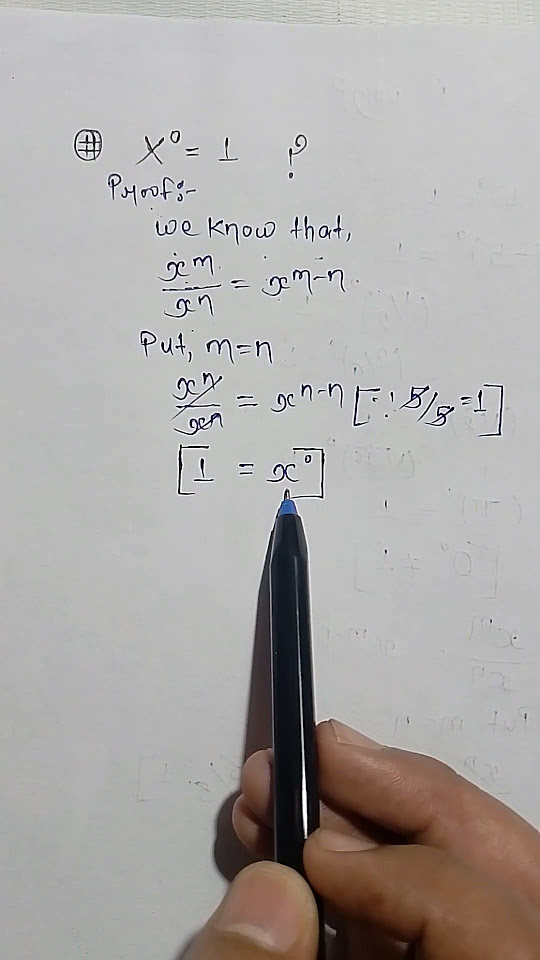 # X⁰ = 1 ?
Proof:-
we know that,
xᵐ/xⁿ = xᵐ⁻ⁿ
Put, m=n
xⁿ/xⁿ = xⁿ⁻ⁿ [∵ 5/5 = 1]
[1 = x⁰]